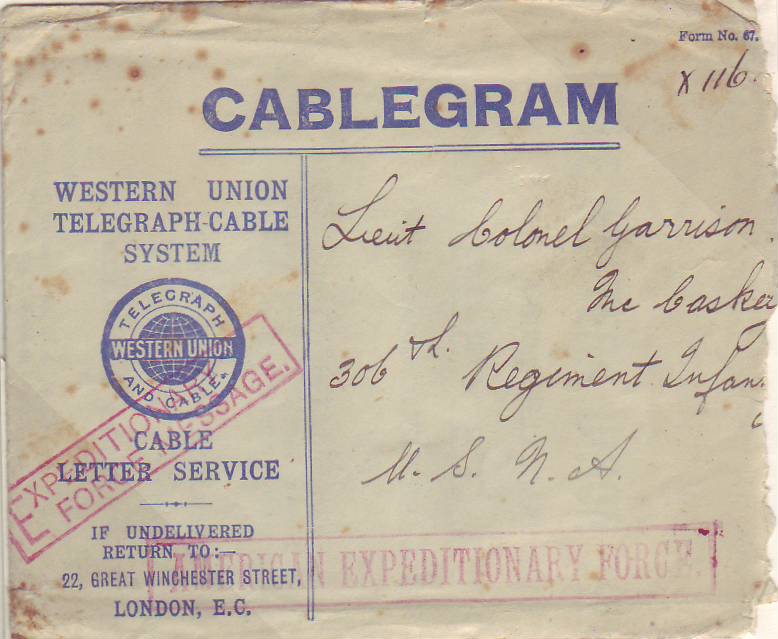 Form No. 67.
X 116.
CABLEGRAM
WESTERN UNION
TELEGRAPH-CABLE
SYSTEM
TELEGRAPH
WESTERN UNION
AND CABLE
CABLE
LETTER SERVICE
IF UNDELIVERED
RETURN TO:—
22, GREAT WINCHESTER STREET,
LONDON, E.C.
Lieut Colonel Garrison
Mc Caskey
306th. Regiment Infan
U. S. N. A.
EXPEDITIONARY
FORCE MESSAGE.
AMERICAN EXPEDITIONARY FORCE.